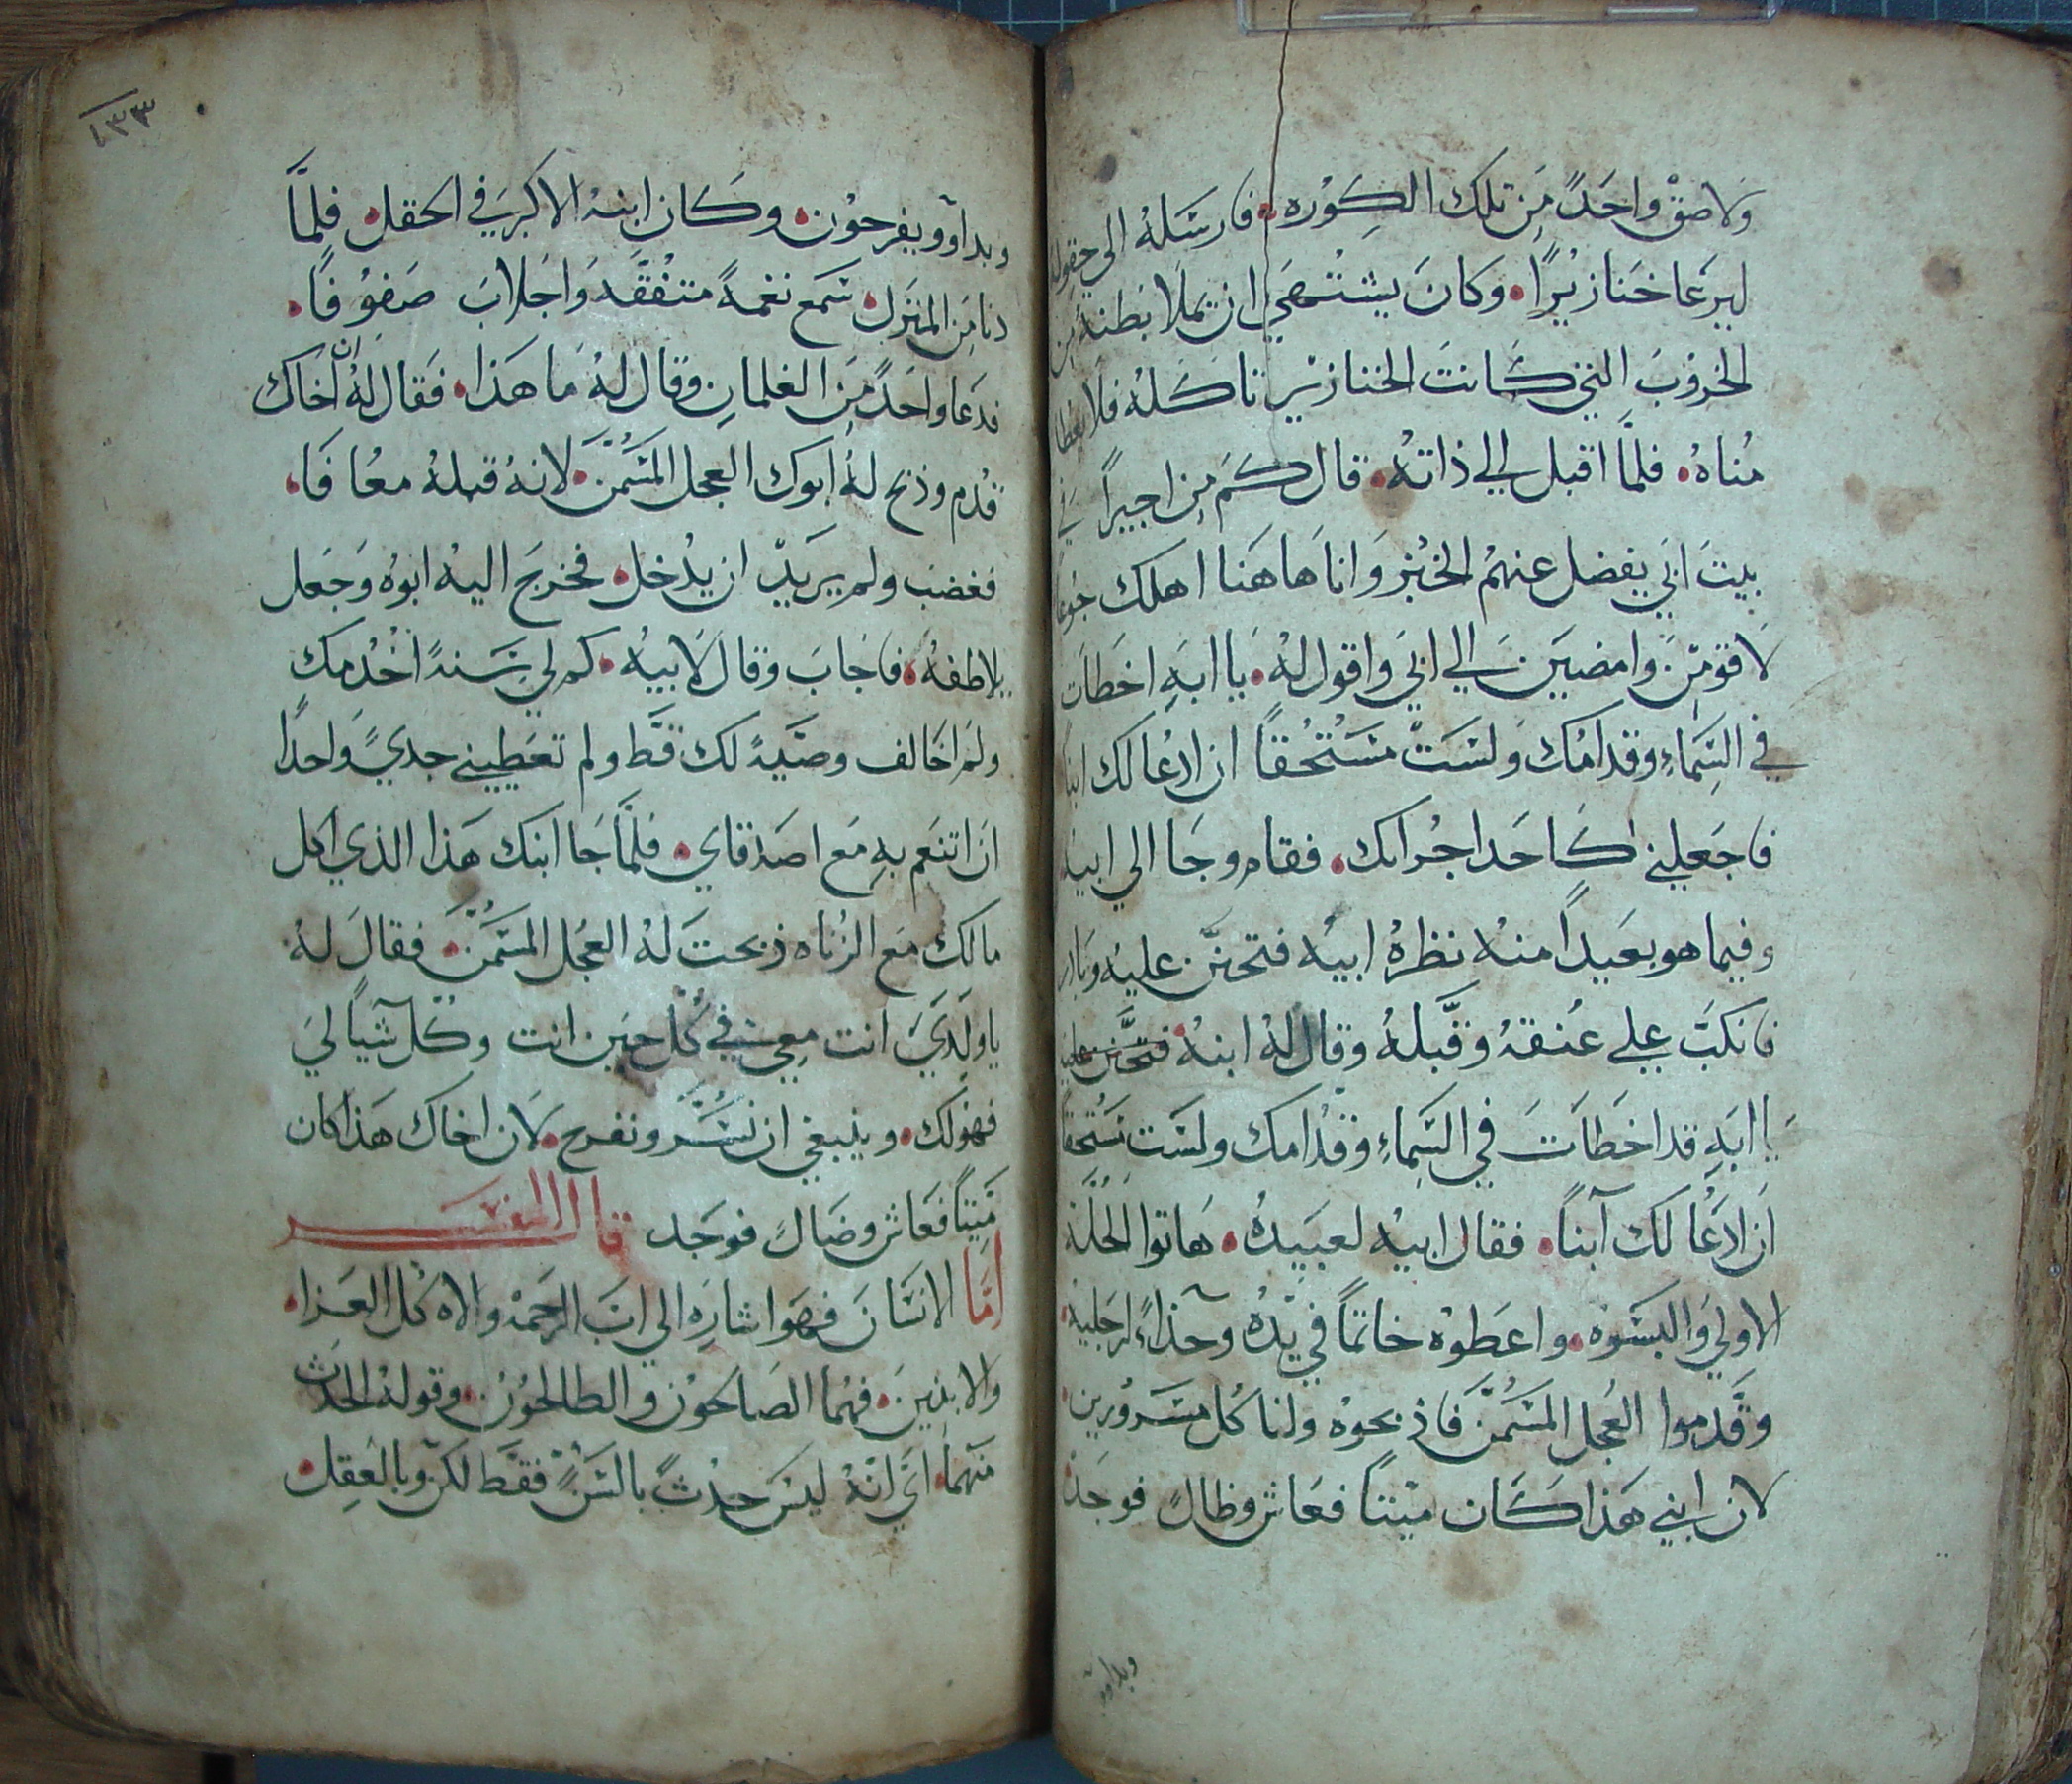 ولاصق واحدً من تلك الكوره فارسله الي حقوله
ليرعا خنازيرًا وكان يشتهي ان يملا بطنه من
الخروب التي كانت الخنازير تاكله فلا يعطا
مُناه فلمّا اقبل الي ذاته قال كم من اجيرًا في
بيت ابي يفضل عنهم الخبز وانا هاهنا اهلك جوعا
لاقومن وامضين الي ابي واقول له يا ابه اخطات
في السماء وقدامك ولست مستحقًا ان ادعا لك ابنا
فاجعلني كاحد اجرائك فقام وجا الي ابيه
وفيما هو بعيدًا منه نظره ابيه فتحنن عليه وبادر
فانكب علي عنقه وقبّله وقال له ابنه فتحنن عليه
يا ابه قد اخطات في السماء وقدامك ولست نستحقا
ان ادعا لك ابنًا فقال ابيه لعبيده هاتوا الحلّة
الاولي والبسوه واعطوه خاتمًا في يده وحذاءً لرجليه
وقدموا العجل المسمّن فاذبحوه وانا كل مسرورين
لان ابني هذا كان ميتًا فعاش وظالً فوجد
وبداوو
١٣٣
وبداوو يفرحون وكان ابنه الاكبر في الحقل فلمّا
دنا من المنزل سمع نغمةً متفقه واجلاب صفوفًا
فدعا واحدً من الغلمان وقال له ما هذا فقال له ان اخاك
قدم وذبح له ابوك العجل المسمّن لانه قبله معافا
فغضب ولم يريد ان يدخل فخرج اليه ابوه وجعل
يلاطفه فاجاب وقال لابيه كم لي سنةً اخدمك
ولم اخالف وصيّةً لك قط ولم تعطيني جديً واحدًا
ان اتنعم به مع اصدقاي فلمّا جا ابنك هذا الذي اكل
مالك مع الزناه ذبحت له العجل المسمّن فقال له
يا ولدي انت معي في كل حين انت وكل شيًا لي
فهو لك وينبغي ان نسّر ونفرح لان اخاك هذا كان
ميتًا فعاش وضالً فوجد قال المفسر
امّا الانسان فهو اشاره الي اب الرحمة والاه كل العزا
والابنين فهما الصالحون والطالحون وقوله الحدث
منهما اي انّه ليس حدثً بالسنً فقط لكن وبالعقل